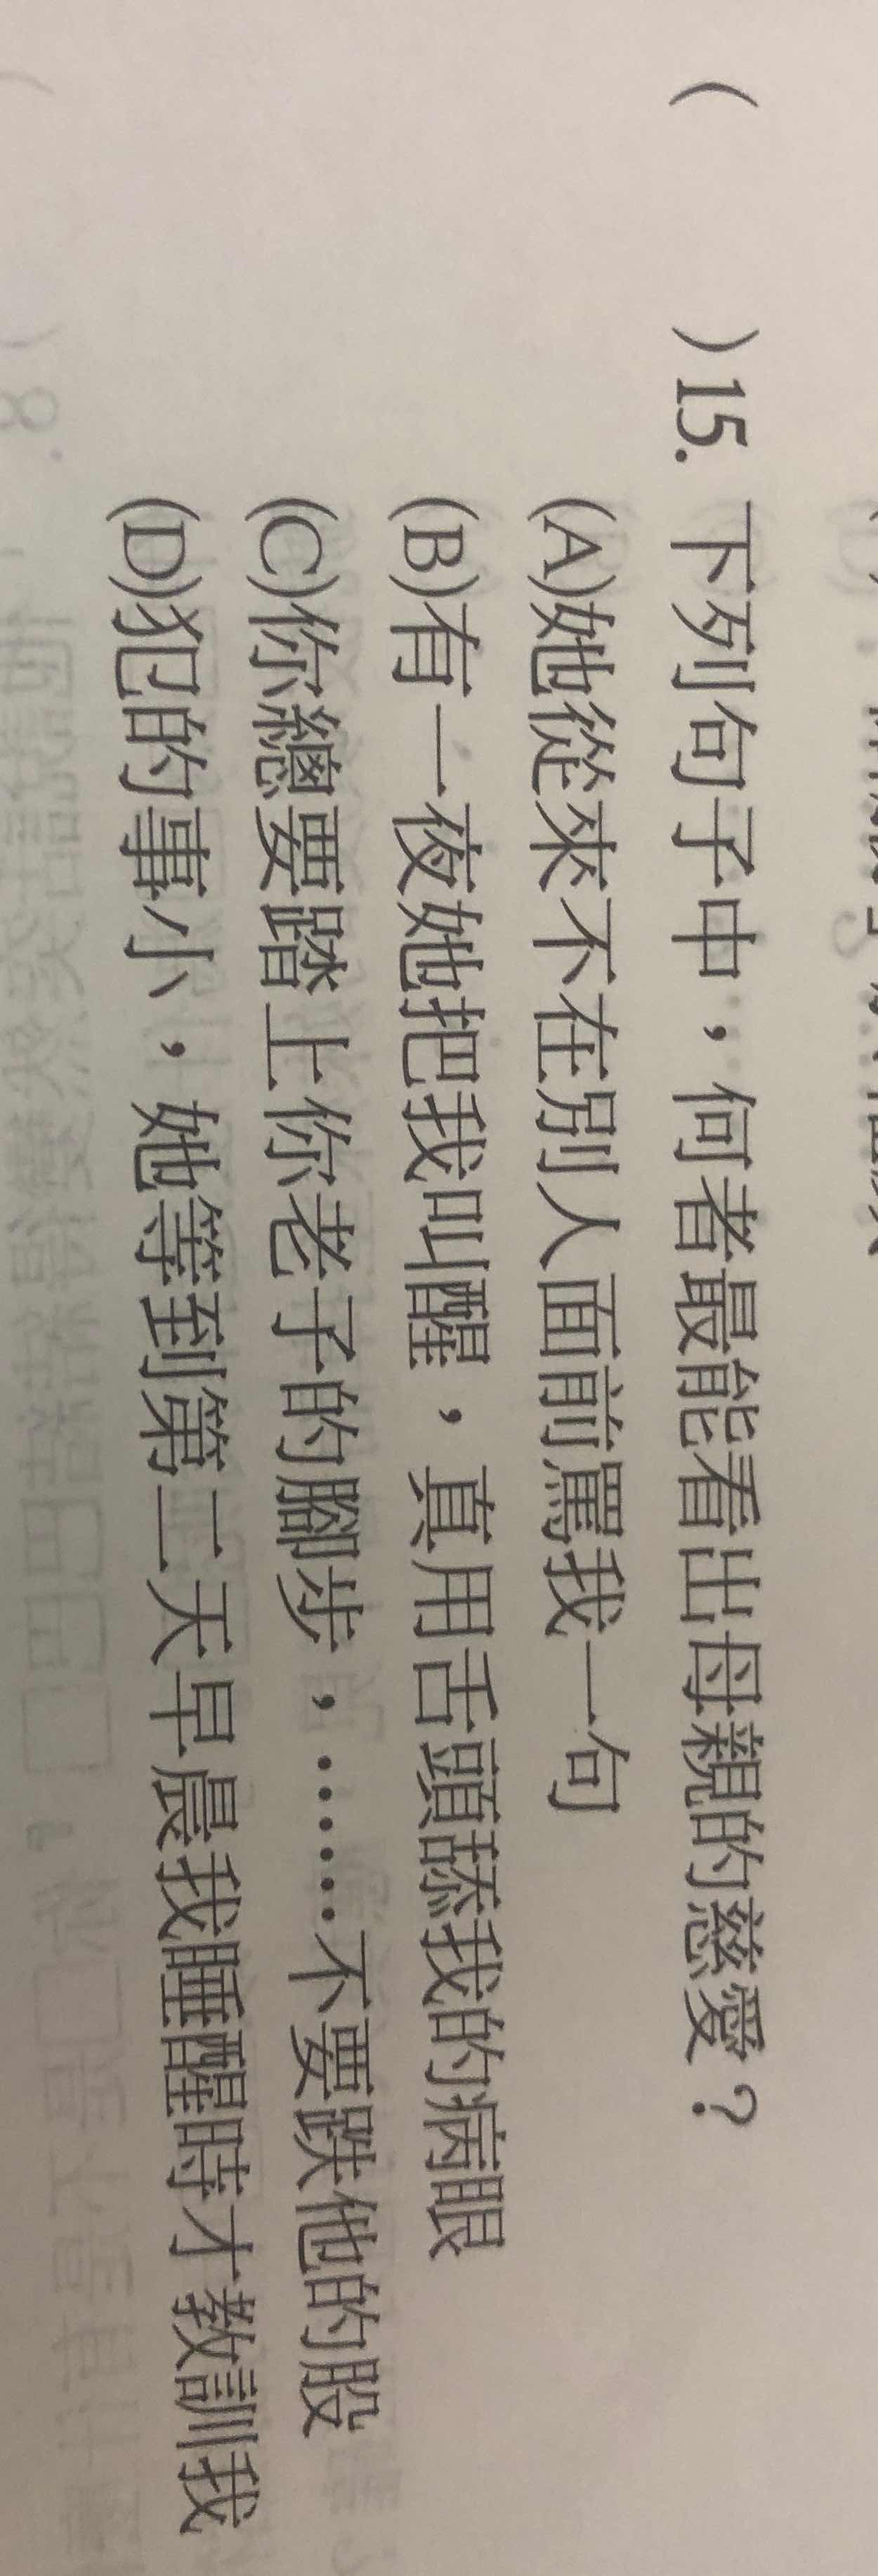 ( )15. 下列句子中，何者最能看出母親的慈愛？
(A)她從來不在別人面前罵我一句
(B)有一夜她把我叫醒，真用舌頭舔我的病眼
(C)你總要踏上你老子的腳步，……不要跌他的股
(D)犯的事小，她等到第二天早晨我睡醒時才教訓我
) 8.